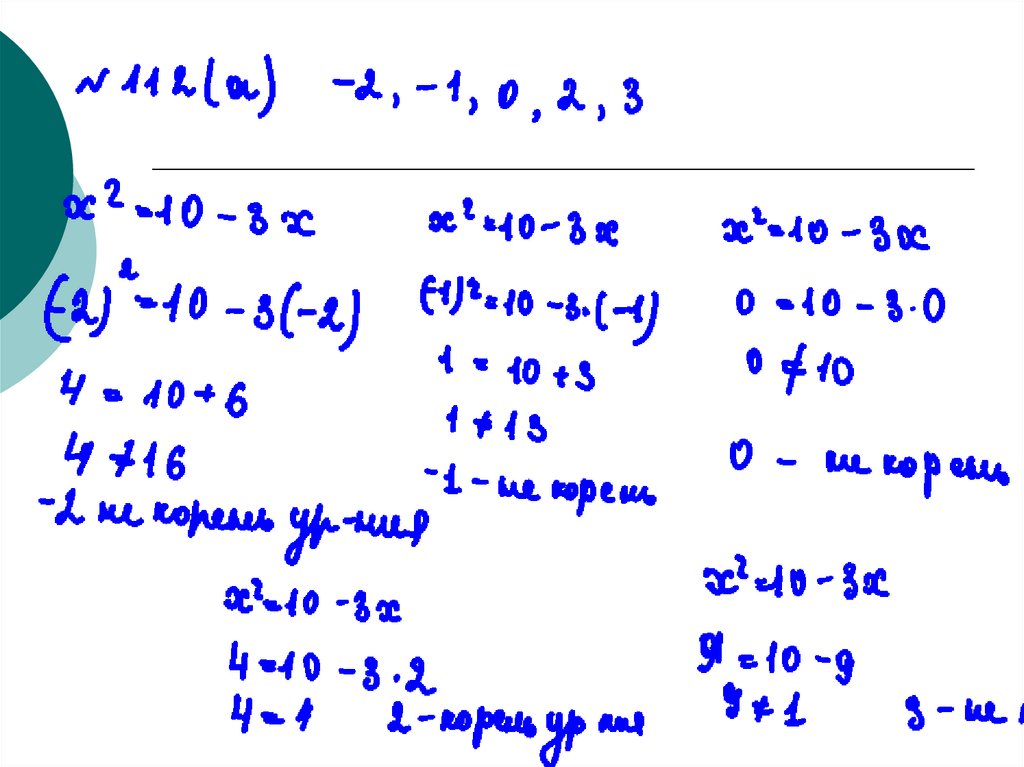 № 112(а) -2, -1, 0, 2, 3
x² = 10 - 3x
(-2)² = 10 - 3(-2)
4 = 10 + 6
4 ≠ 16
-2 не корень ур-ния
x² = 10 - 3x
(-1)² = 10 - 3·(-1)
1 = 10 + 3
1 ≠ 13
-1 - не корень
x² = 10 - 3x
0 = 10 - 3·0
0 ≠ 10
0 - не корень
x² = 10 - 3x
4 = 10 - 3·2
4 = 1 2 - корень ур ния
x² = 10 - 3x
9 = 10 - 9
9 ≠ 1 3 - не